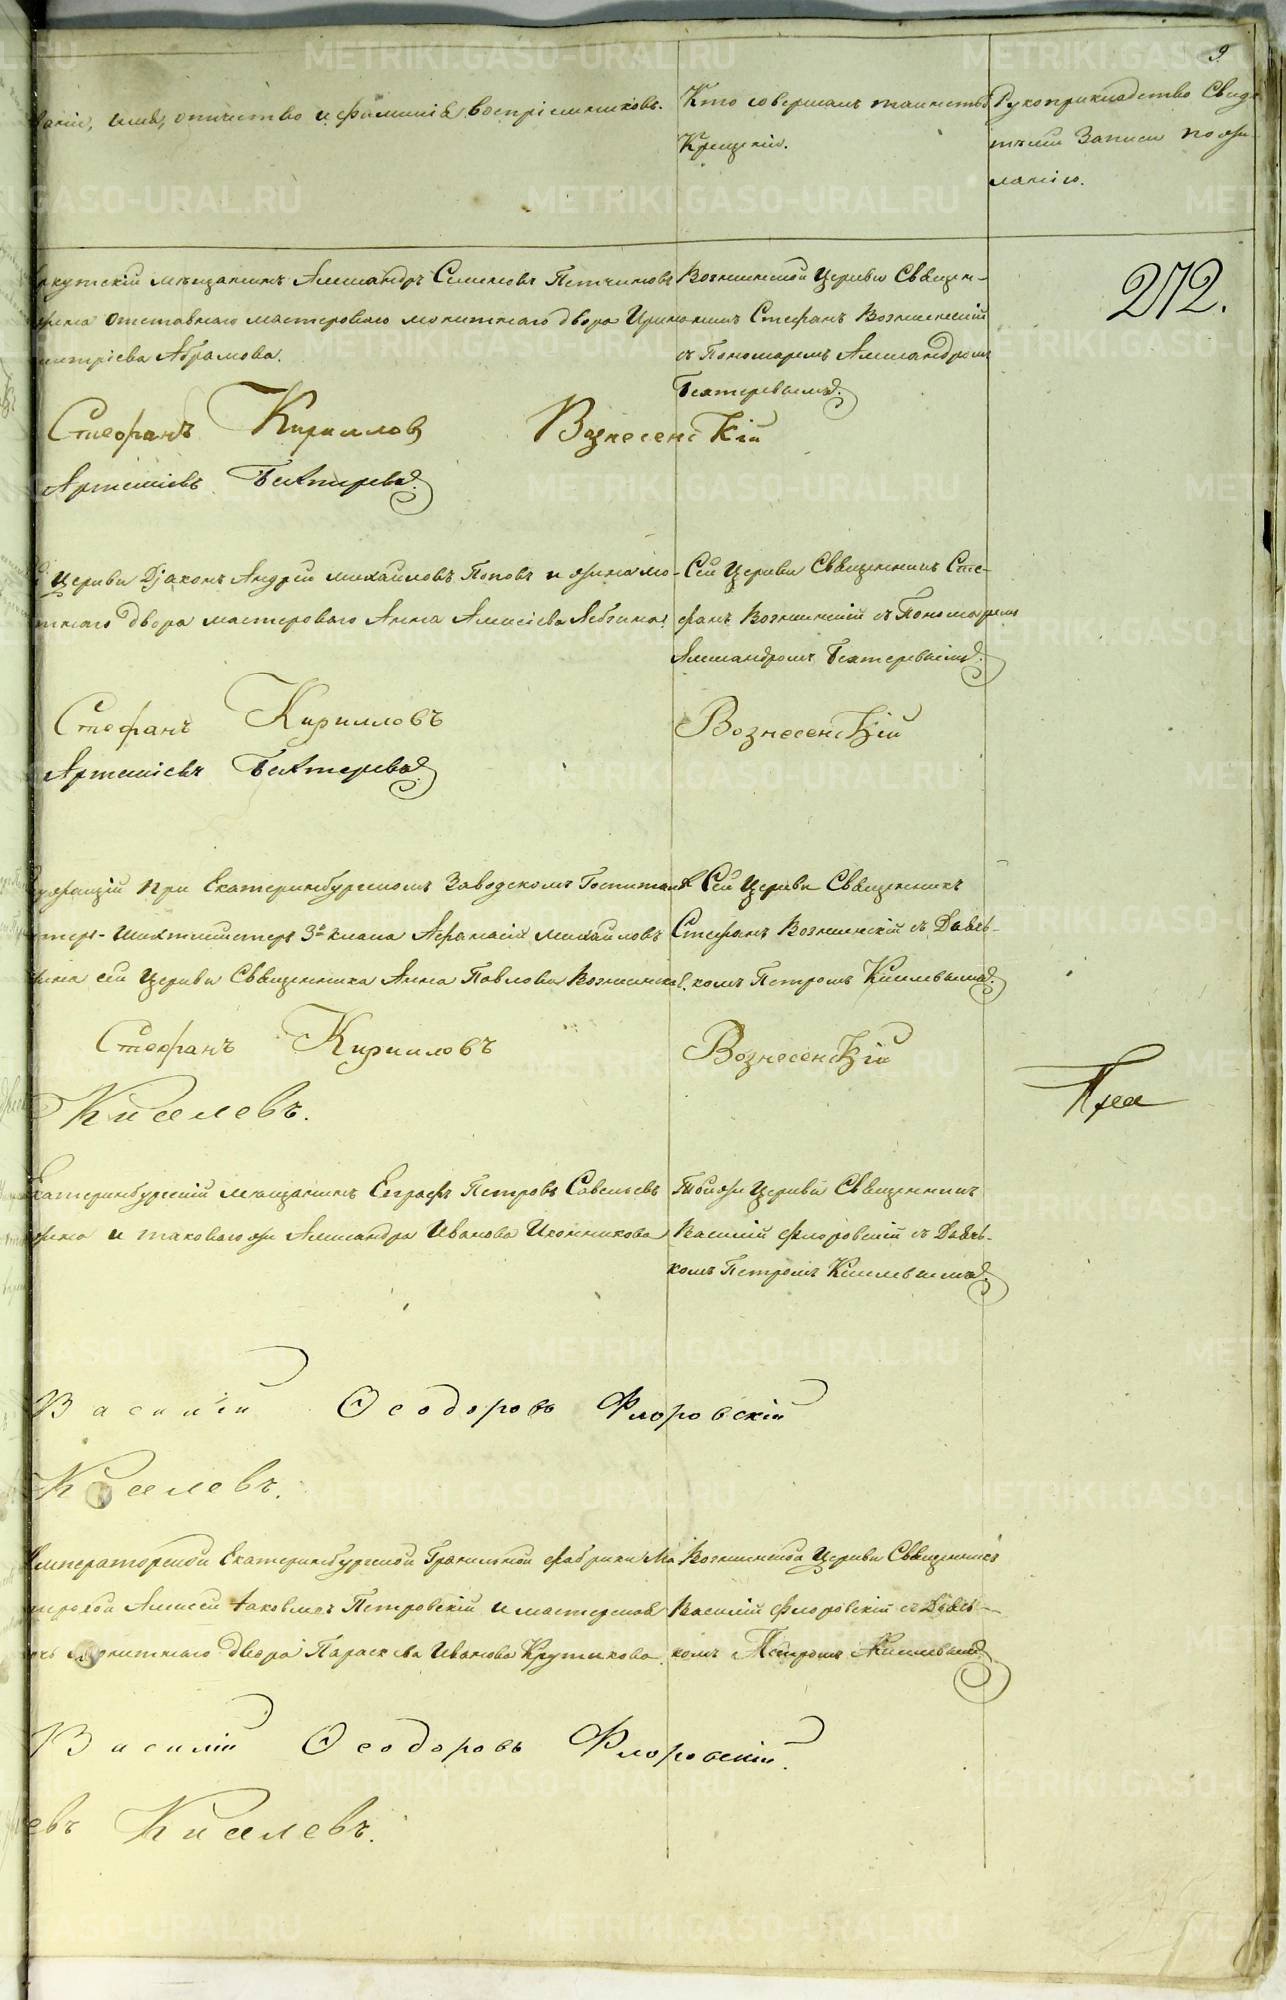 9
Званіе, имя, отчество и фамилія воспріемниковъ.
Кто совершалъ таинство
Крещенія.
Рукоприкладство Свиде
телей Записи по же
ланію.
272.
мѣщанинъ Александръ Семеновъ
жена отставнаго мастероваго монетнаго двора Ирина
митріева Абрамова.
Вознесенской Церкви Священ-
никъ Стефанъ Вознесенскій
съ Пономаремъ Александромъ
Бехтеревымъ.
Стефанъ Кирилловъ Вознесенскій
Артеміевъ Бехтеревъ
Церкви Діаконъ Андрей Михайловъ Поповъ и жена мо-
нетнаго двора мастероваго Анна Алексіева
Сей Церкви Священникъ Сте-
фанъ Вознесенскій съ Пономаремъ
Александромъ Бехтеревымъ.
Стефанъ Кирилловъ Вознесенскій
Артеміевъ Бехтеревъ
при Екатеринбургскомъ Заводскомъ Госпитале
Шихтмейстеръ 3го класса Афанасій Михайловъ
жена сей Церкви Священника Анна Павлова Вознесенская.
Сей Церкви Священникъ
Стефанъ Вознесенскій съ Дьяч-
комъ Петромъ Киселевымъ.
Стефанъ Кирилловъ Вознесенскій
Киселевъ.
Екатеринбургскій мещанинъ Евграфъ Петровъ Савельевъ
жена и таковаго же Александра Иванова Иконникова
Той же Церкви Священникъ
Василій Флоровскій съ Дьяч-
комъ Петромъ Киселевымъ.
Василій Ѳеодоровъ Флоровскій
Киселевъ.
Императорской Екатеринбургской Гранильной фабрики Ма
стеровой Алексей Іаковлевъ Петровскій и
монетнаго двора Параскева Иванова Крутикова
Вознесенской Церкви Священникъ
Василій Флоровскій съ Дьяч-
комъ Петромъ Киселевымъ.
Василій Ѳеодоровъ Флоровскій.
евъ Киселевъ.